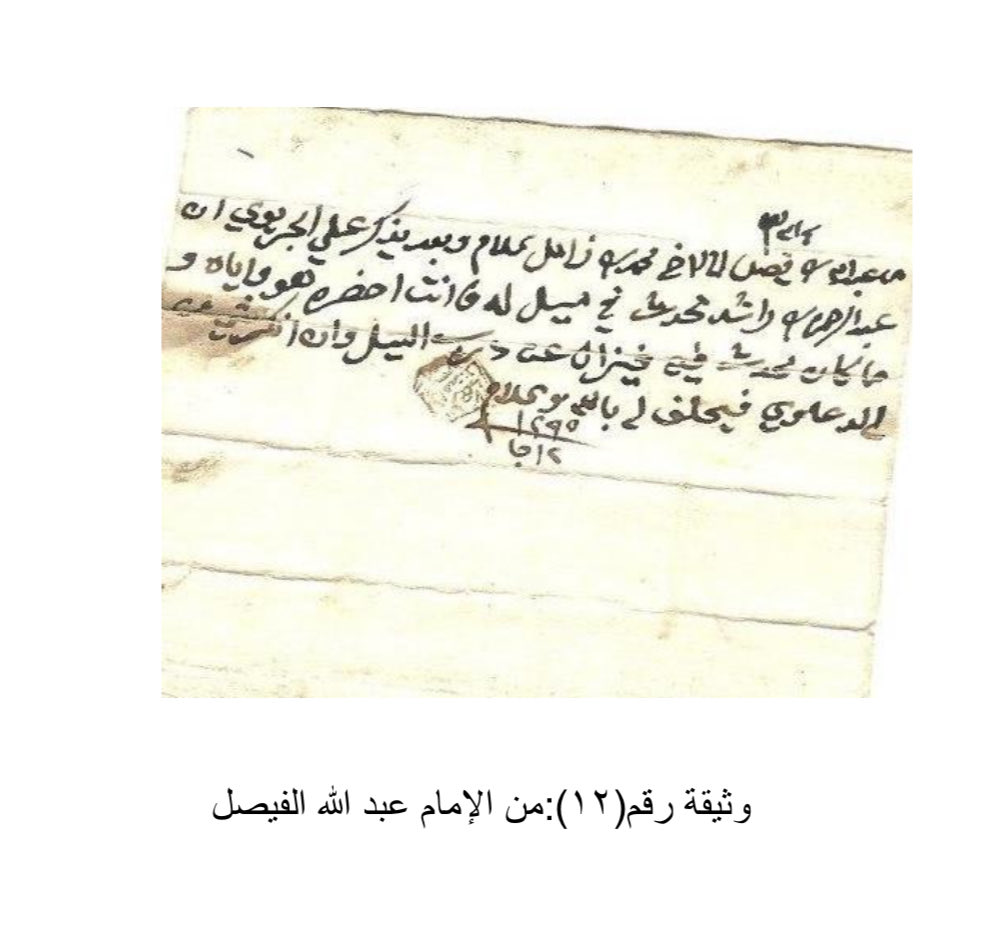 من عبدالله بن فيصل الى الاخ محمد بن زامل سلام وبعد يذكر علي الجريوي ان
عبدالرحمن بن راشد محدث في مسيل له فانت احضره هو واياه و
ما كان محدث فيه فينزال عن درب السيل وان انكر
الدعاوي فيحلف له بالله والسلام
١٢٩٥
١٢ جا
وثيقة رقم(١٢):من الإمام عبد الله الفيصل